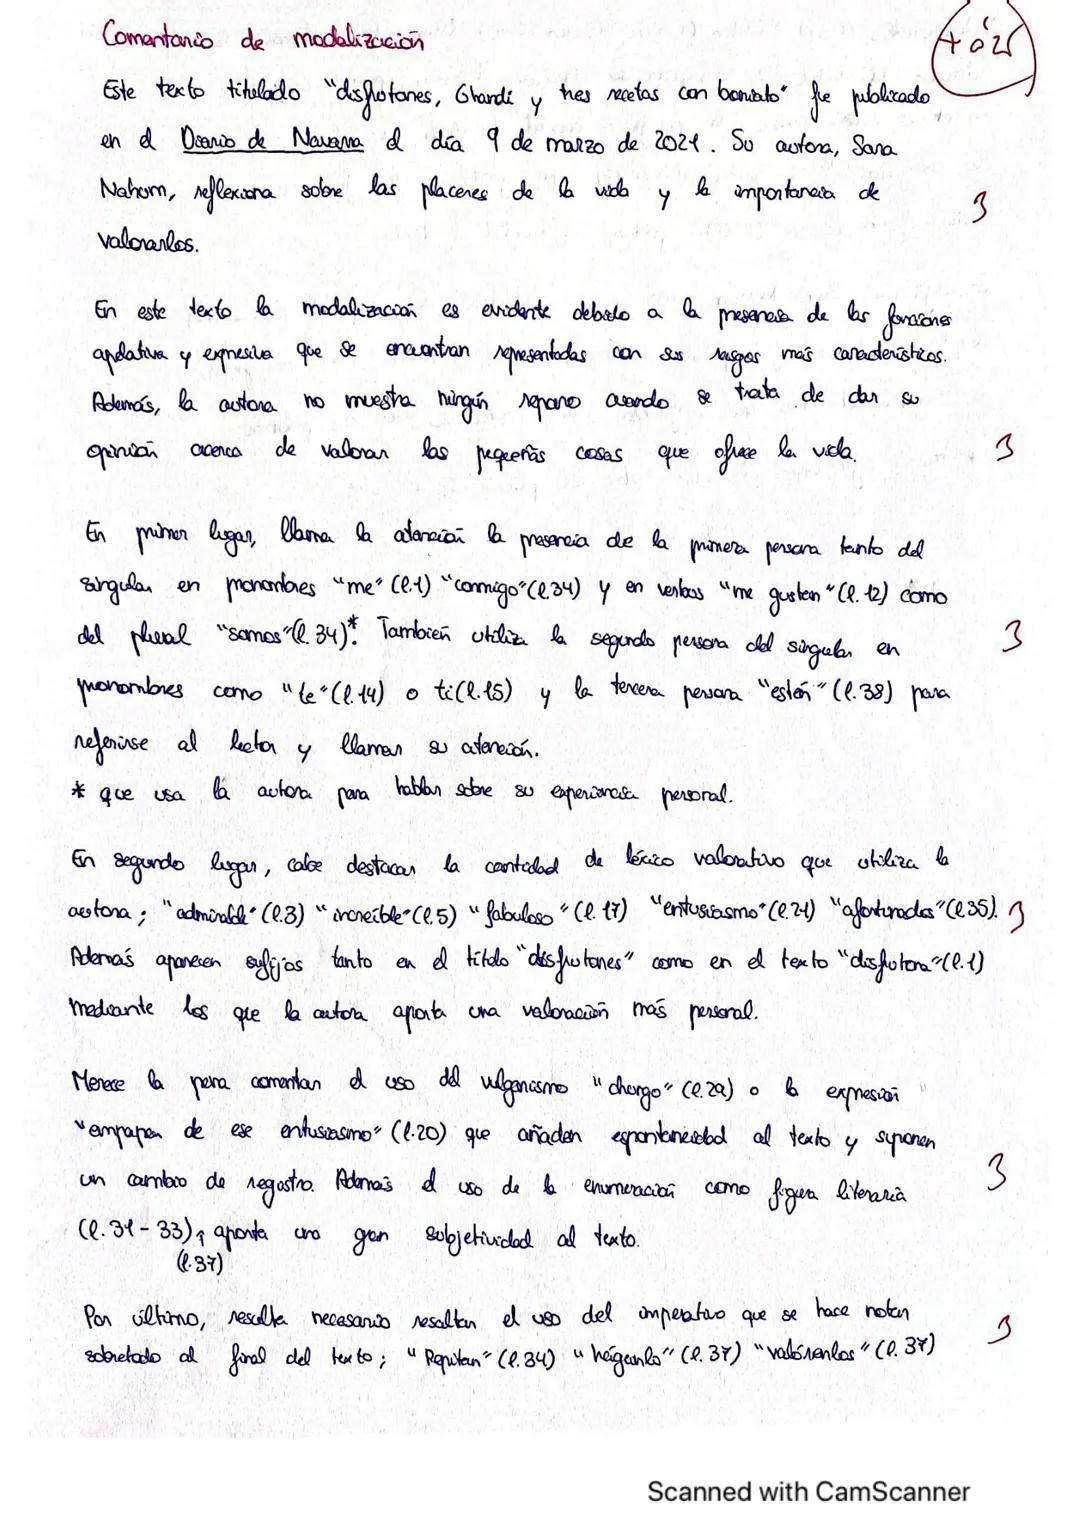 Comentario de modalización
+0'25
Este texto titulado "disfrutones, Ghandi y tres recetas con boniato" fue publicado
en el Diario de Navarra el día 9 de marzo de 2021. Su autora, Sara
Nahum, reflexiona sobre los placeres de la vida y la importancia de
3
valorarlos.
En este texto la modalización es evidente debido a la presencia de las funciones
apelativa y expresiva que se encuentran representadas con sus rasgos más característicos.
Además, la autora no muestra ningún reparo cuando se trata de dar su
opinión acerca de valorar las pequeñas cosas que ofrece la vida.
3
En primer lugar, llama la atención la presencia de la primera persona tanto del
singular en pronombres "me" (l.1) "conmigo" (l.34) y en verbos "me gustan" (l.12) como
del plural "somos" (l.34)*. También utiliza la segunda persona del singular en
3
pronombres como "te" (l.14) o ti (l.15) y la tercera persona "estén" (l.38) para
referirse al lector y llamar su atención.
* que usa la autora para hablar sobre su experiencia personal.
En segundo lugar, cabe destacar la cantidad de léxico valorativo que utiliza la
autora; "admirable" (l.3) "increíble" (l.5) "fabuloso" (l.17) "entusiasmo" (l.21) "afortunados" (l.35).
3
Además aparecen sufijos tanto en el título "disfrutones" como en el texto "disfrutona" (l.1)
mediante los que la autora aporta una valoración más personal.
Merece la pena comentar el uso del vulgarismo "chorgo" (l.29) o la expresión
"empapan de ese entusiasmo" (l.20) que añaden espontaneidad al texto y suponen
un cambio de registro. Además el uso de la enumeración como figura literaria
3
(l.31-33), aporta una gran subjetividad al texto.
(l.37)
Por último, resulta necesario resaltar el uso del imperativo que se hace notar
sobretodo al final del texto; "Repitan" (l.34) "háganlo" (l.37) "valórenlos" (l.37)
3
Scanned with CamScanner